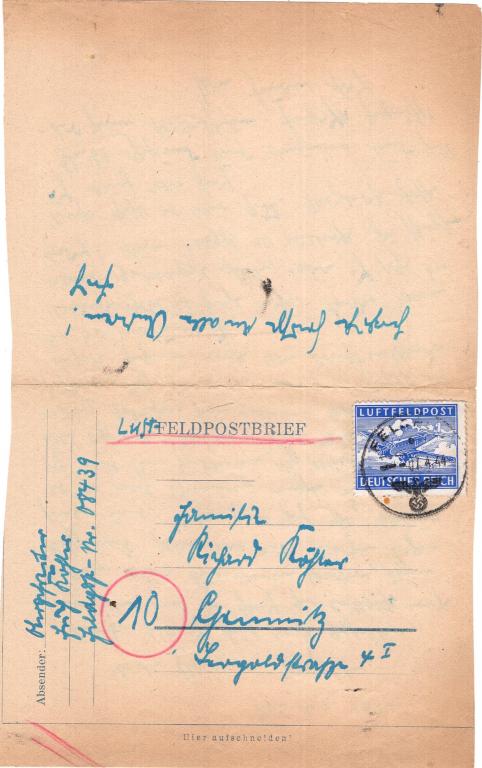 Herzliche Grüße an alle Anderen!
Luft-FELDPOSTBRIEF
LUFTFELDPOST
DEUTSCHES REICH
FELDPOST
4.44
Familie
Richard Köhler
10 Chemnitz
Leopoldstraße 4 I
Absender:
Fritz Köhler
Feldpost-Nr. 08439
Hier aufschneiden!